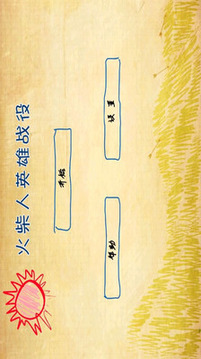 火柴人英雄战役
开始
帮助
设置